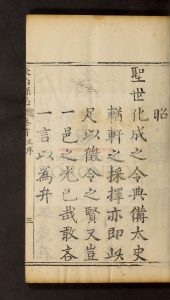 昭
聖世化成之令典備太史
輶軒之採擇亦即此
足以徵令之賢又豈
一邑之光已哉敢吝
一言以為弁
三